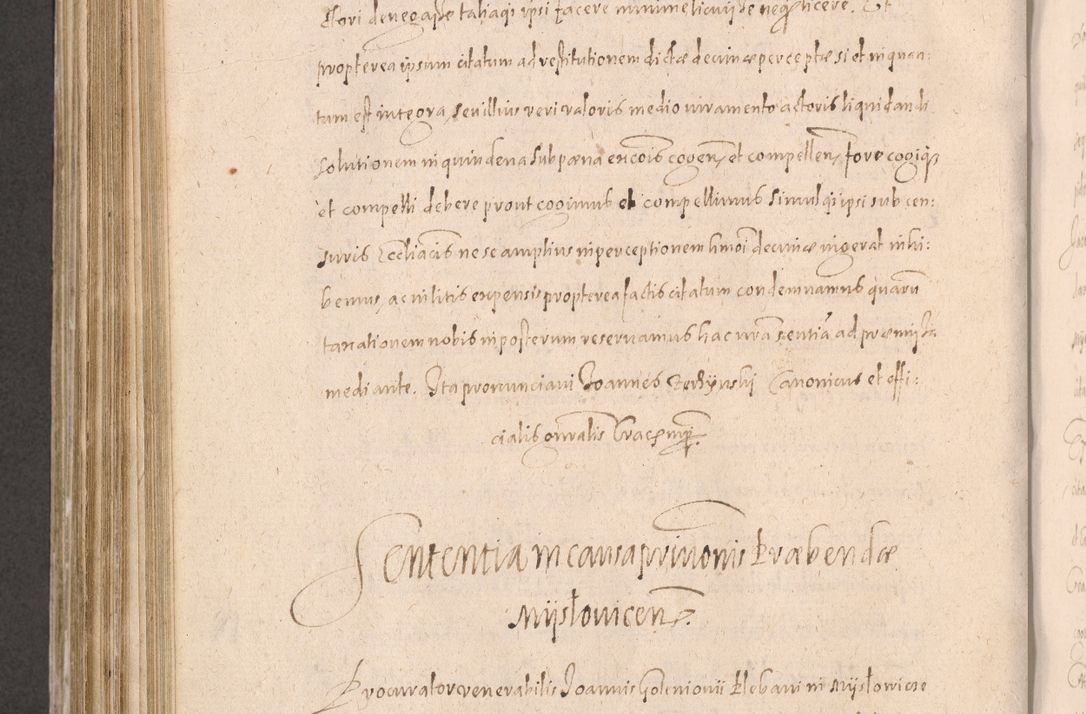 ctori denegasse taliaqз ipsi facere minime licuisse neqз licere. Et
propterea ipsum citatum ad restitutionem dictæ decimæ perceptæ si et in quan:
tum est integra, seu illius veri valoris medio iuramento actoris liquidandi
solutionem in quindena sub pæna excois cogen, et compellen, fore cogiqз
et compelli debere prout cogimus et compellimus simulqз ipsi sub cen:
suris Ecclīacis ne se amplius in perceptionem hmōi decimæ ingerat inhi:
bemus, ac in litis expensis propterea factis citatum condemnamus quarū
taxationem nobis in posterum reservamus hac nr̄a sentiā ad præmissa
mediante. Ita pronunciavi Joannes Canonicus et offi:
cialis gn̄ralis Crac
Sententia in causa privōnis Præbendæ
Mÿsłovicen.
Procurator venerabilis Joannis Plebani in Mÿsłowicze